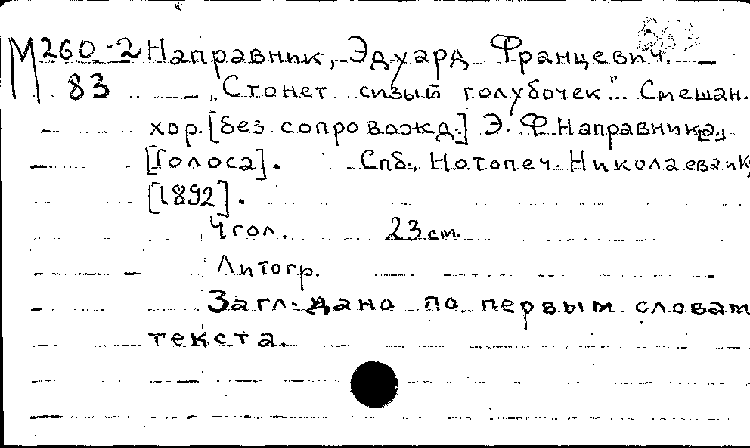 М 260-2 Направник, Эдуард Францевич.
83 „Стонет сизый голубочек". Смешан.
хор. [без сопровожд.] Э. Ф. Направника.
[Голоса]. Спб., Нотопеч. Николаева и К
[1892].
4 гол. 23 cm.
Литогр.
Загл. дано по первым словам
текста.